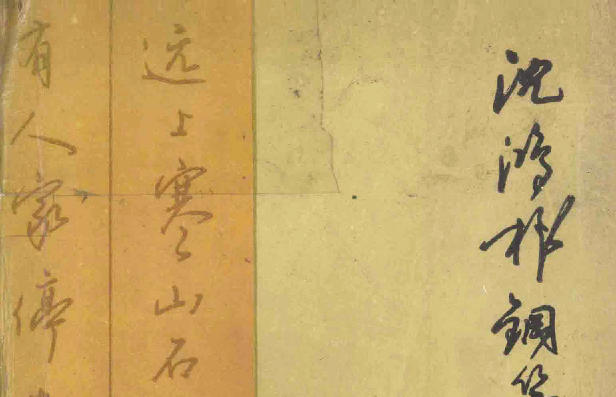 沈鸿根鋼
远上寒山石
有人家停